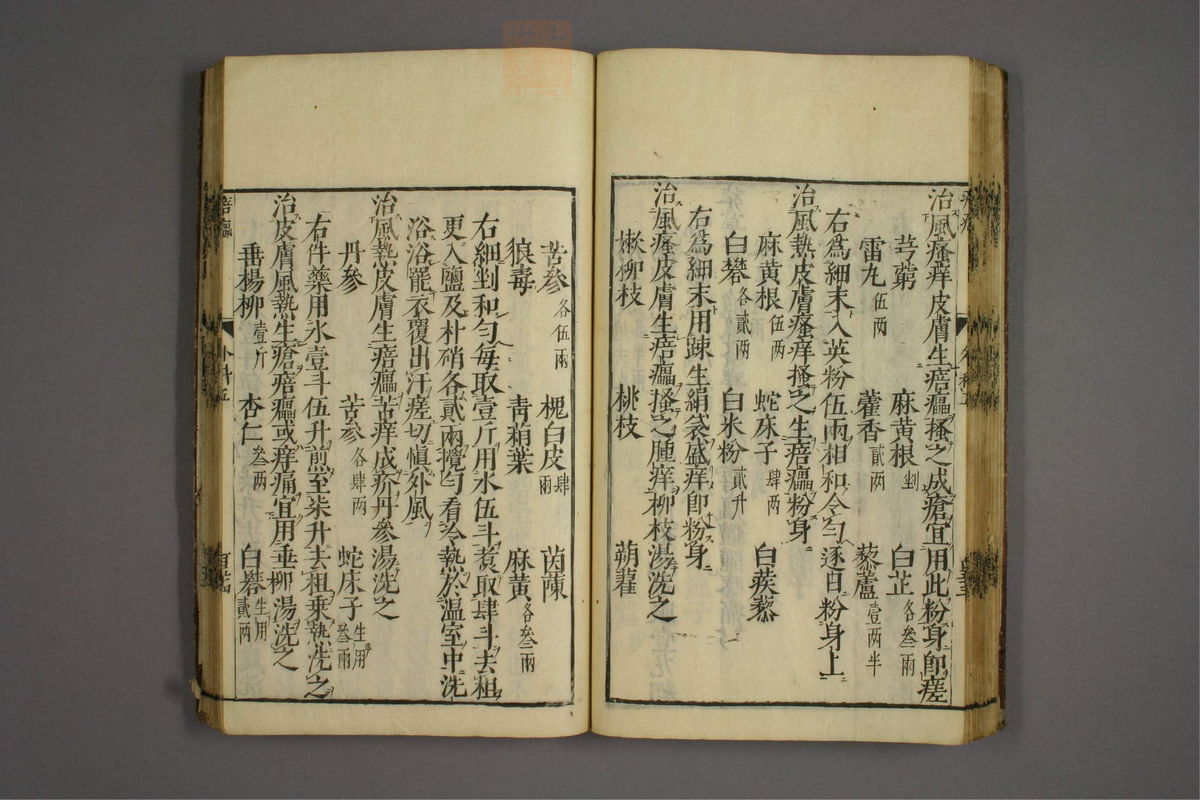 治風瘙痒皮膚生㾦㿔搔之成瘡宜用此粉身卽瘥
芎藭 麻黃根剉 白芷各叁兩
雷丸伍兩 藿香貳兩 藜蘆壹兩半
右爲細末入英粉伍兩相和令勻逐日粉身上
治風熱皮膚瘙痒搔之生㾦㿔粉身
麻黃根伍兩 蛇床子肆兩 白蒺藜
白礬各貳兩 白米粉貳升
右爲細末用踈生絹袋盛痒卽粉身
治風瘙皮膚生㾦㿔搔之腫痒柳枝湯洗之
嫩柳枝 桃枝 蒴藋
苦參各伍兩 槐白皮肆兩 茵蔯
狼毒 靑葙葉 麻黃各叁兩
右細剉和勻每取壹斤用水伍斗煑取肆斗去柤
更入鹽及朴硝各貳兩攪勻看冷熱於溫室中洗
浴浴罷衣覆出汗瘥切愼外風
治風熱皮膚生㾦㿔苦痒成疥丹參湯洗之
丹參 苦參各肆兩 蛇床子生用叁兩
右件藥用水壹斗伍升煎至柒升去柤乗熱洗之
治皮膚風熱生瘡㾦㿔或痒痛宜用垂柳湯洗之
垂楊柳壹斤 杏仁叁兩 白礬生用貳兩